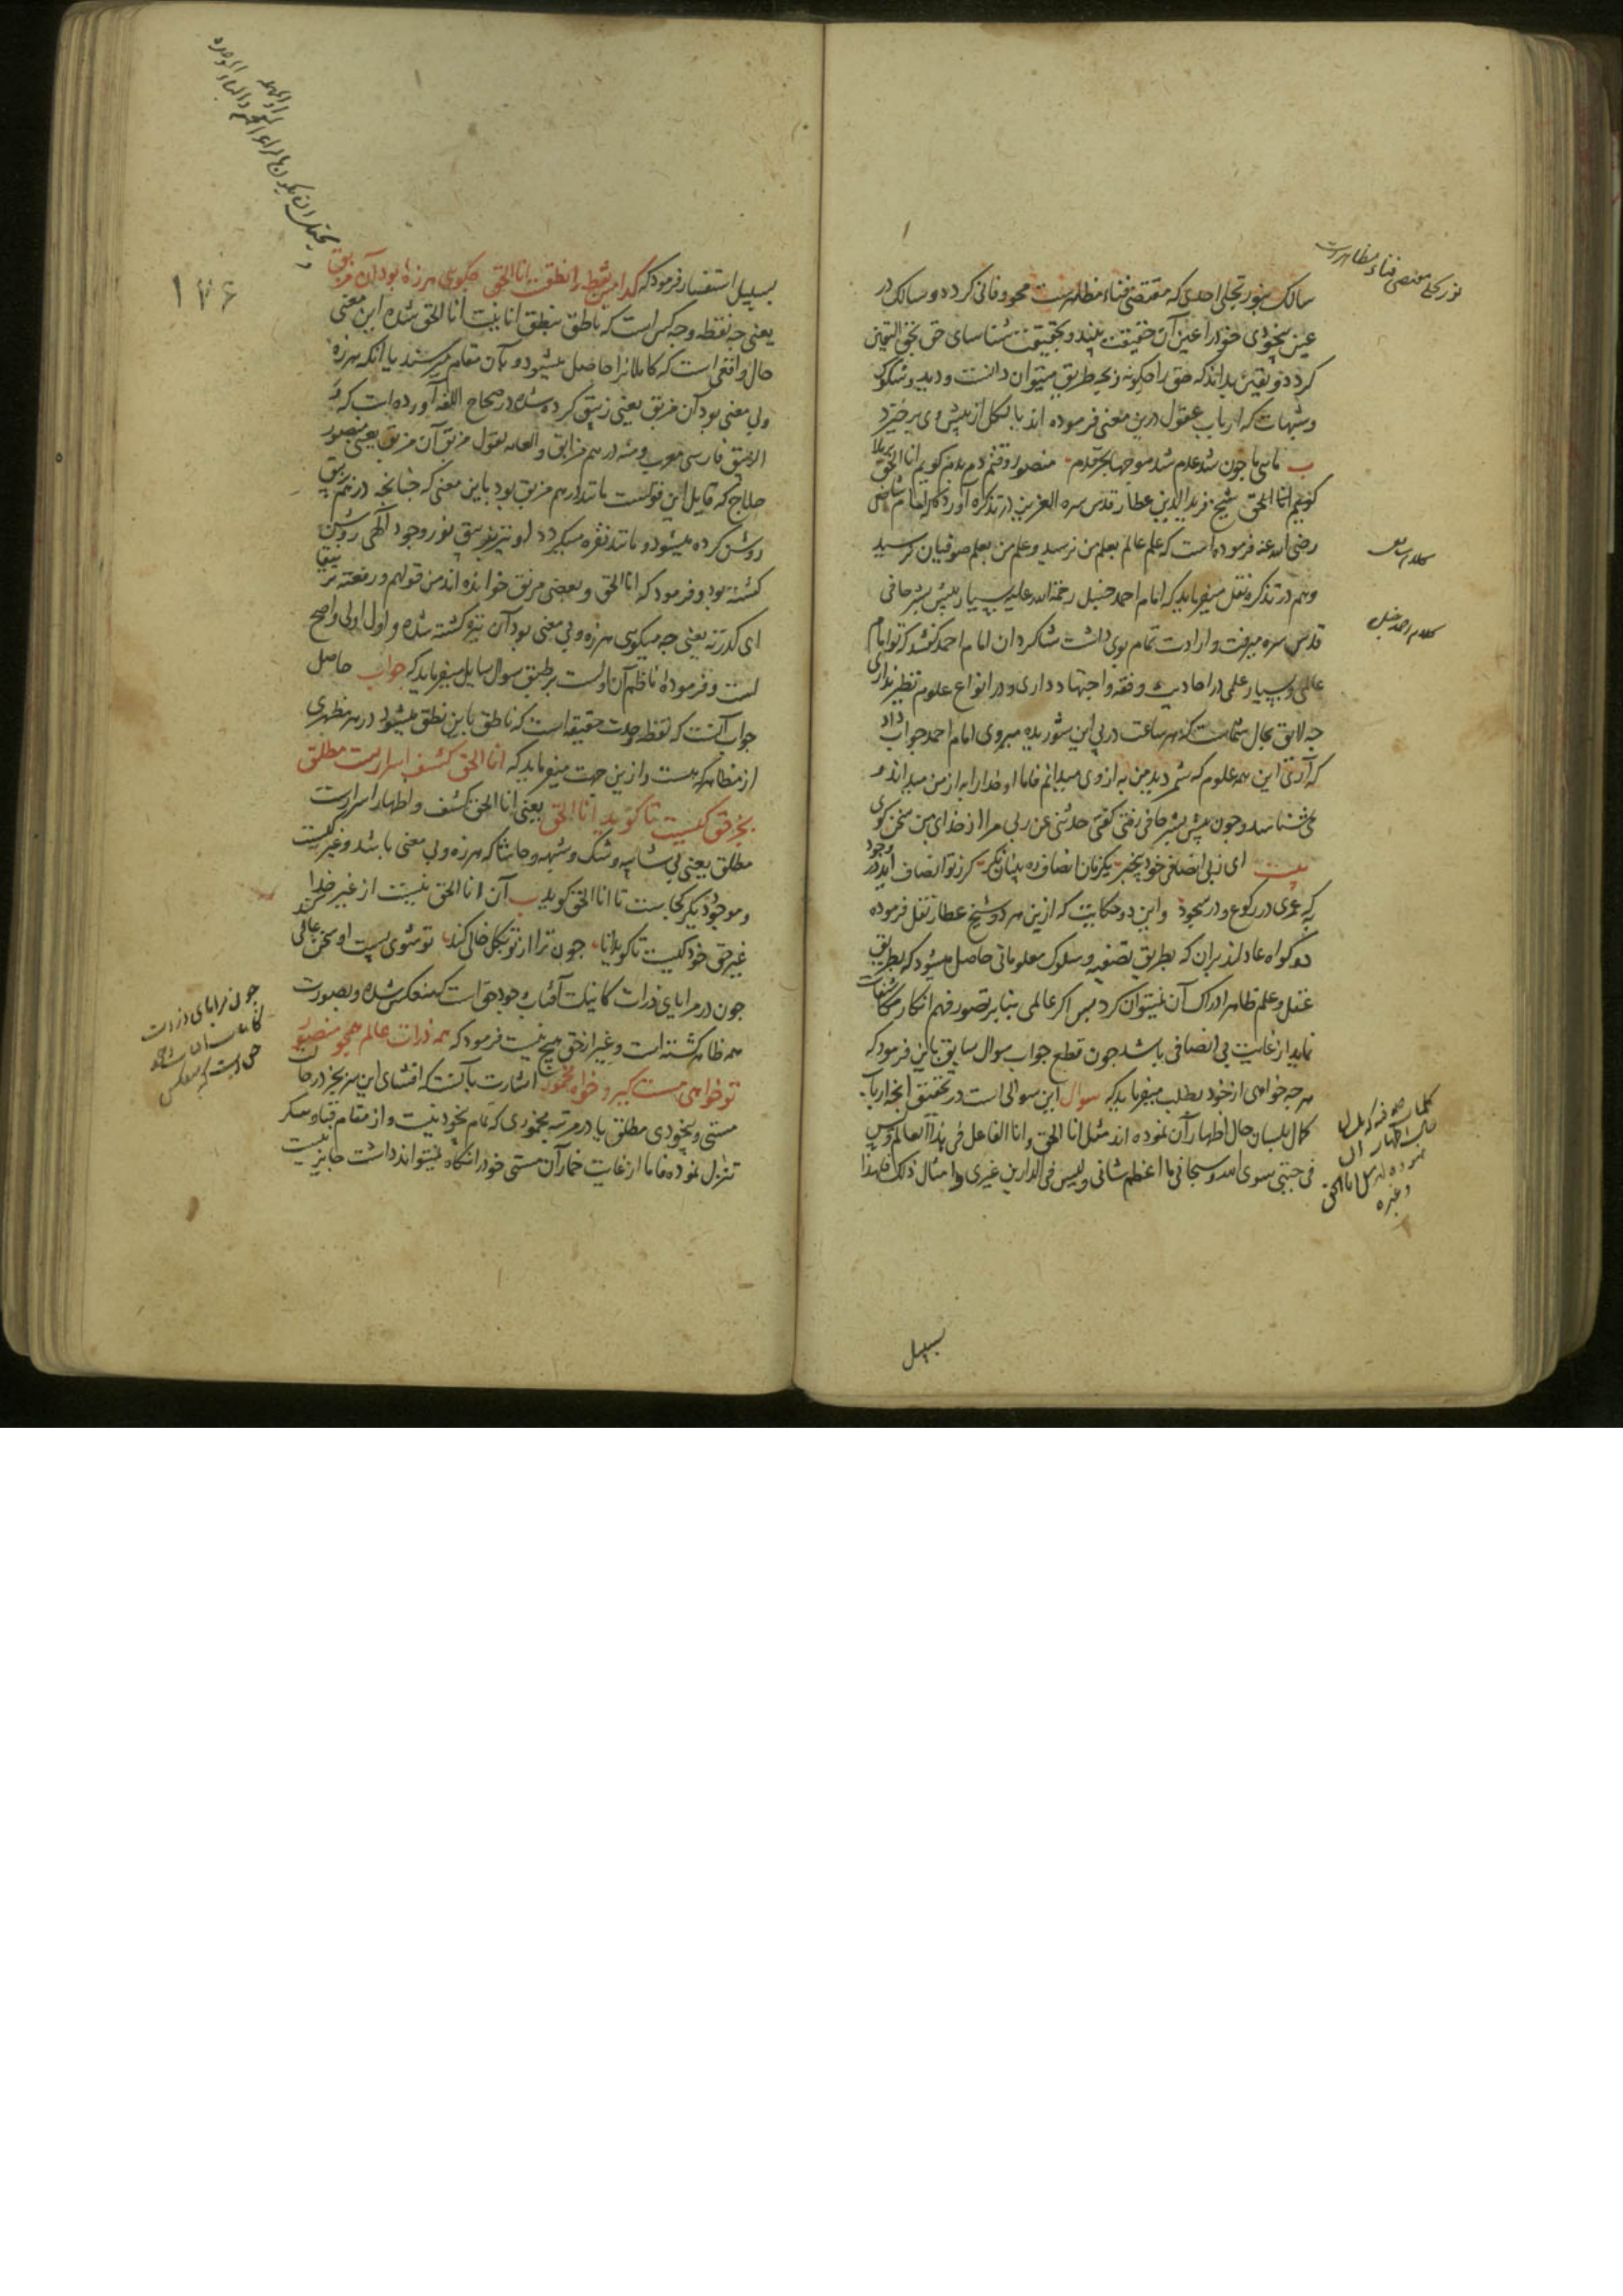 سالک بنور تجلی احدی که مقتضی فناء مظاهرست محو و فانی کردد و سالک در
عین بیخودی خود را عین آن حقیقت بیند و بحقیقت شناسای حق بحق الیقین
کردد و بیقین بداند که حق را چکونه و بچه طریق میتوان دانست و دید و شکوک
و شبهات که ارباب عقول درین معنی فرموده اند بالکل از پیش وی برخیزد
ب ما سی ما چون شد علم شد موجها بحر قدم منصور وقتم دم بدم کویم انا الحق برملا
کویم انا الحق شیخ فرید الدین عطار قدس سره العزیز در تذکره آورد که امام شافعی
رضی الله عنه فرموده است که علم عالم بعلم من نرسید و علم من بعلم صوفیان نرسید
و هم در تذکره نقل میفرماید که امام احمد حنبل رحمة الله علیه بسیار پیش بشر حافی
قدس سره میرفت و ارادت تمام بوی داشت شاکردان امام احمد کفتند که تو امام
عالمی و بسیار علمی در احادیث و فقه و اجتهاد داری و در انواع علوم نظیر نداری
چه لایق بحال شماست که هر ساعت در پی این شوریده میروی امام احمد جواب داد
که آری این همه علوم که شمردید من به از وی میدانم فاما او خدا را به از من میداند و
می شناسد و چون پیش بشر حافی رفتی کفتی حدثنی عن ربی مرا از خدای من سخن کوی
بیت ای ز بی انصافی خود بیخبر یکزمان انصاف ده پنهان نکر کر ز تو انصاف آید در وجود
به که عمری در رکوع و در سجود و این دو حکایت که ازین هر دو شیخ عطار نقل فرموده
دو کواه عادلند بران که بطریق تصفیه و سلوک معلوماتی حاصل میشود که بطریق
عقل و علم ظاهر ادراک آن نمیتوان کرد پس اکر عالمی بنابر قصور فهم انکار مکاشفات
نماید از غایت بی انصافی باشد چون قطع جواب سوال سابق باین فرمود که
هر چه خواهی از خود بطلب میفرماید که سوال این سوالی است در تحقیق آنچه ارباب
کمال بلسان حال اظهار آن نموده اند مثل انا الحق و انا الفاعل فی هذا العالم و لیس
فی جبتی سوی الله و سبحانی ما اعظم شانی و لیس فی الدارین غیری و امثال ذلک فلهذا
سبیل
نور تجلی مقتضی فناء مظاهرست
کلام شافعی
کلام احمد حنبل
کلمات صوفیه که بلسان
حال اظهار آن
نموده اند مثل انا الحق
و غیره
۱۷۶
بسبیل استفسار فرمود که کدامین نقطه را نطقست انا الحق چکویی هرزه بود آن مزبق
یعنی چه نقطه و چه کس است که ناطق بنطق انانیت انا الحق شده این معنی
حال واقعی است که کاملانرا حاصل میشود و بآن مقام میرسند یا آنکه هرزه
و بی معنی بود آن مزبق یعنی زیبق کرده شده در صحاح اللغه آورده است که و
الزیبق فارسی معرب و منه درهم مزابق و العامه تقول مزبق آن مزبق یعنی منصور
حلاج که قایل این قولست مانند درهم مزبق بود باین معنی که چنانچه درهم بزیبق
روشن کرده میشود و مانند نقره میکردد او نیز بزیبق نور وجود الهی روشن
کشته بود و فرمود که انا الحق و بعضی مرنق خوانده اند من قولهم رنقته ترنیقا
ای کدرته یعنی چه میکویی هرزه و بی معنی بود آن تیره کشته شده و اول اولی و اصح
است و فرموده ناظم آن اولست بر طبق سوال سایل میفرماید که جواب حاصل
جواب آنست که نقطه وحدت حقیقه است که ناطق باین نطق میشود در هر مظهری
از مظاهر که هست و ازین جهت میفرماید که انا الحق کشف اسرارست مطلق
بجز حق کیست تا کوید انا الحق یعنی انا الحق کشف و اظهار اسرارست
مطلق یعنی بی شایبه و شک و شبهه و حاشا که هرزه و بی معنی باشد و غیر کیست
و موجود دیکر کجاست تا انا الحق کوید ب آن انا الحق نیست از غیر خدا
غیر حق خود کیست تا کوید انا چون ترا از تو بکل خالی کند تو شوی پست او سخن عالی کند
چون در مرایای ذرات کاینات آفتاب وجود حق است که منعکس شده و بصورت
همه ظاهر کشته است و غیر از حق هیچ نیست فرمود که همه ذرات عالم همچو منصور
تو خواهی مست کیر و خواه مخمور اشارت بآنست که افشای این سر بجز در حالت
مستی و بیخودی مطلق یا در مرتبه مخموری که تمام بخود نیست و از مقام فناء و سکر
تنزل نموده فاما از غایت خمار آن مستی خود را نکاه نمیتواند داشت جایز نیست
چون مرایای ذرات
کاینات
حق است که منعکس